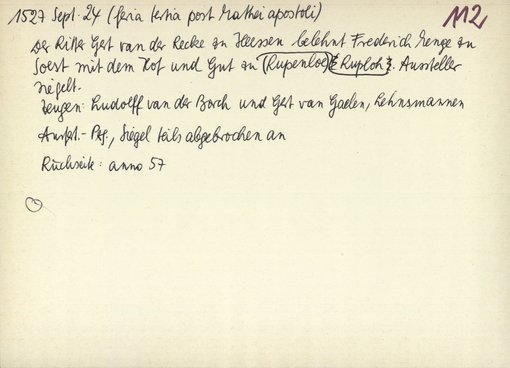 1527 Sept. 24 (feria tertia post Mathei apostoli) 112
Der Ritter Gert van der Recke zu Heessen belehnt Frederich Menge zu
Soest mit dem Hof und Gut zu (Rupenloe) (Ruploh). Aussteller
siegelt.
Zeugen: Ludolff van der Borch und Gert van Gaelen, Lehnsmannen
Ausf.- Pg., Siegel teils abgebrochen an
Rückseite: anno 57